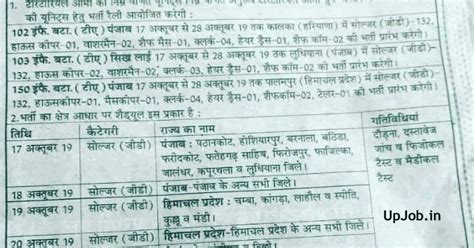 1. टैरिटोरियल आर्मी की निम्न
की यूनिट्स हेतु भर्ती रैली आयोजित करेगी :
102 इंफै. बटा. ( टीए ) पंजाब 17 अक्तूबर से 28 अक्तूबर 19 तक कालका (हरियाणा) में सोल्जर (जीडी)-132,
हाऊस कीपर-01, वाशरमैन-02, शैफ मैस-01, क्लर्क-04, हेयर ड्रैस-01, शैफकॉम-02 की भर्ती प्रारंभ करेगी।
103 इंफै. बटा. (टीए) सिख लाई 17 अक्तूबर से 28 अक्तूबर 19 तक लुधियाना (पंजाब) में सोल्जर (जीडी)-132,
हाऊसकीपर-01, वाशरमैन-02, शैफकॉम-02, क्लर्क-03, हेयर ड्रैस-01 की भर्ती प्रारंभ करेगी।
150 इंफै. बटा. (टीए) पंजाब 17 अक्तूबर से 28 अक्तूबर 19 तक पालमपुर (हिमाचल प्रदेश) में सोल्जर (जीडी)-
132, हाऊसकीपर-01, मैसकीपर-01, क्लर्क-04, हेयर ड्रैस-01, शैफकॉम-02, टेलर-01 की भर्ती करेगी।
2. भर्ती का क्षेत्र आधार पर शैड्यूल इस प्रकार है :
तिथि कैटेगरी राज्य का नाम गतिविधियां
17 अक्तूबर 19 सोल्जर (जीडी) पंजाब : पठानकोट, होशियारपुर, बरनाला, बठिंडा, दौड़ना, दस्तावेज
फरीदकोट, फतेहगढ़ साहिब, फिरोजपुर, फाजिल्का, जांच व फिजीकल
जालंधर, कपूरथला व लुधियाना जिले। टैस्ट व मैडीकल
18 अक्तूबर 19 सोल्जर (जीडी) पंजाब-पंजाब के अन्य सभी जिले। टैस्ट
19 अक्तूबर 19 सोल्जर (जीडी) हिमाचल प्रदेश : चम्बा, कांगड़ा, लाहौल व स्पीति,
कुल्लू व मंडी।
20 अक्तूबर 19 सोल्जर (जीडी) हिमाचल प्रदेश-हिमाचल प्रदेश के अन्य सभी जिले।
UpJob.in